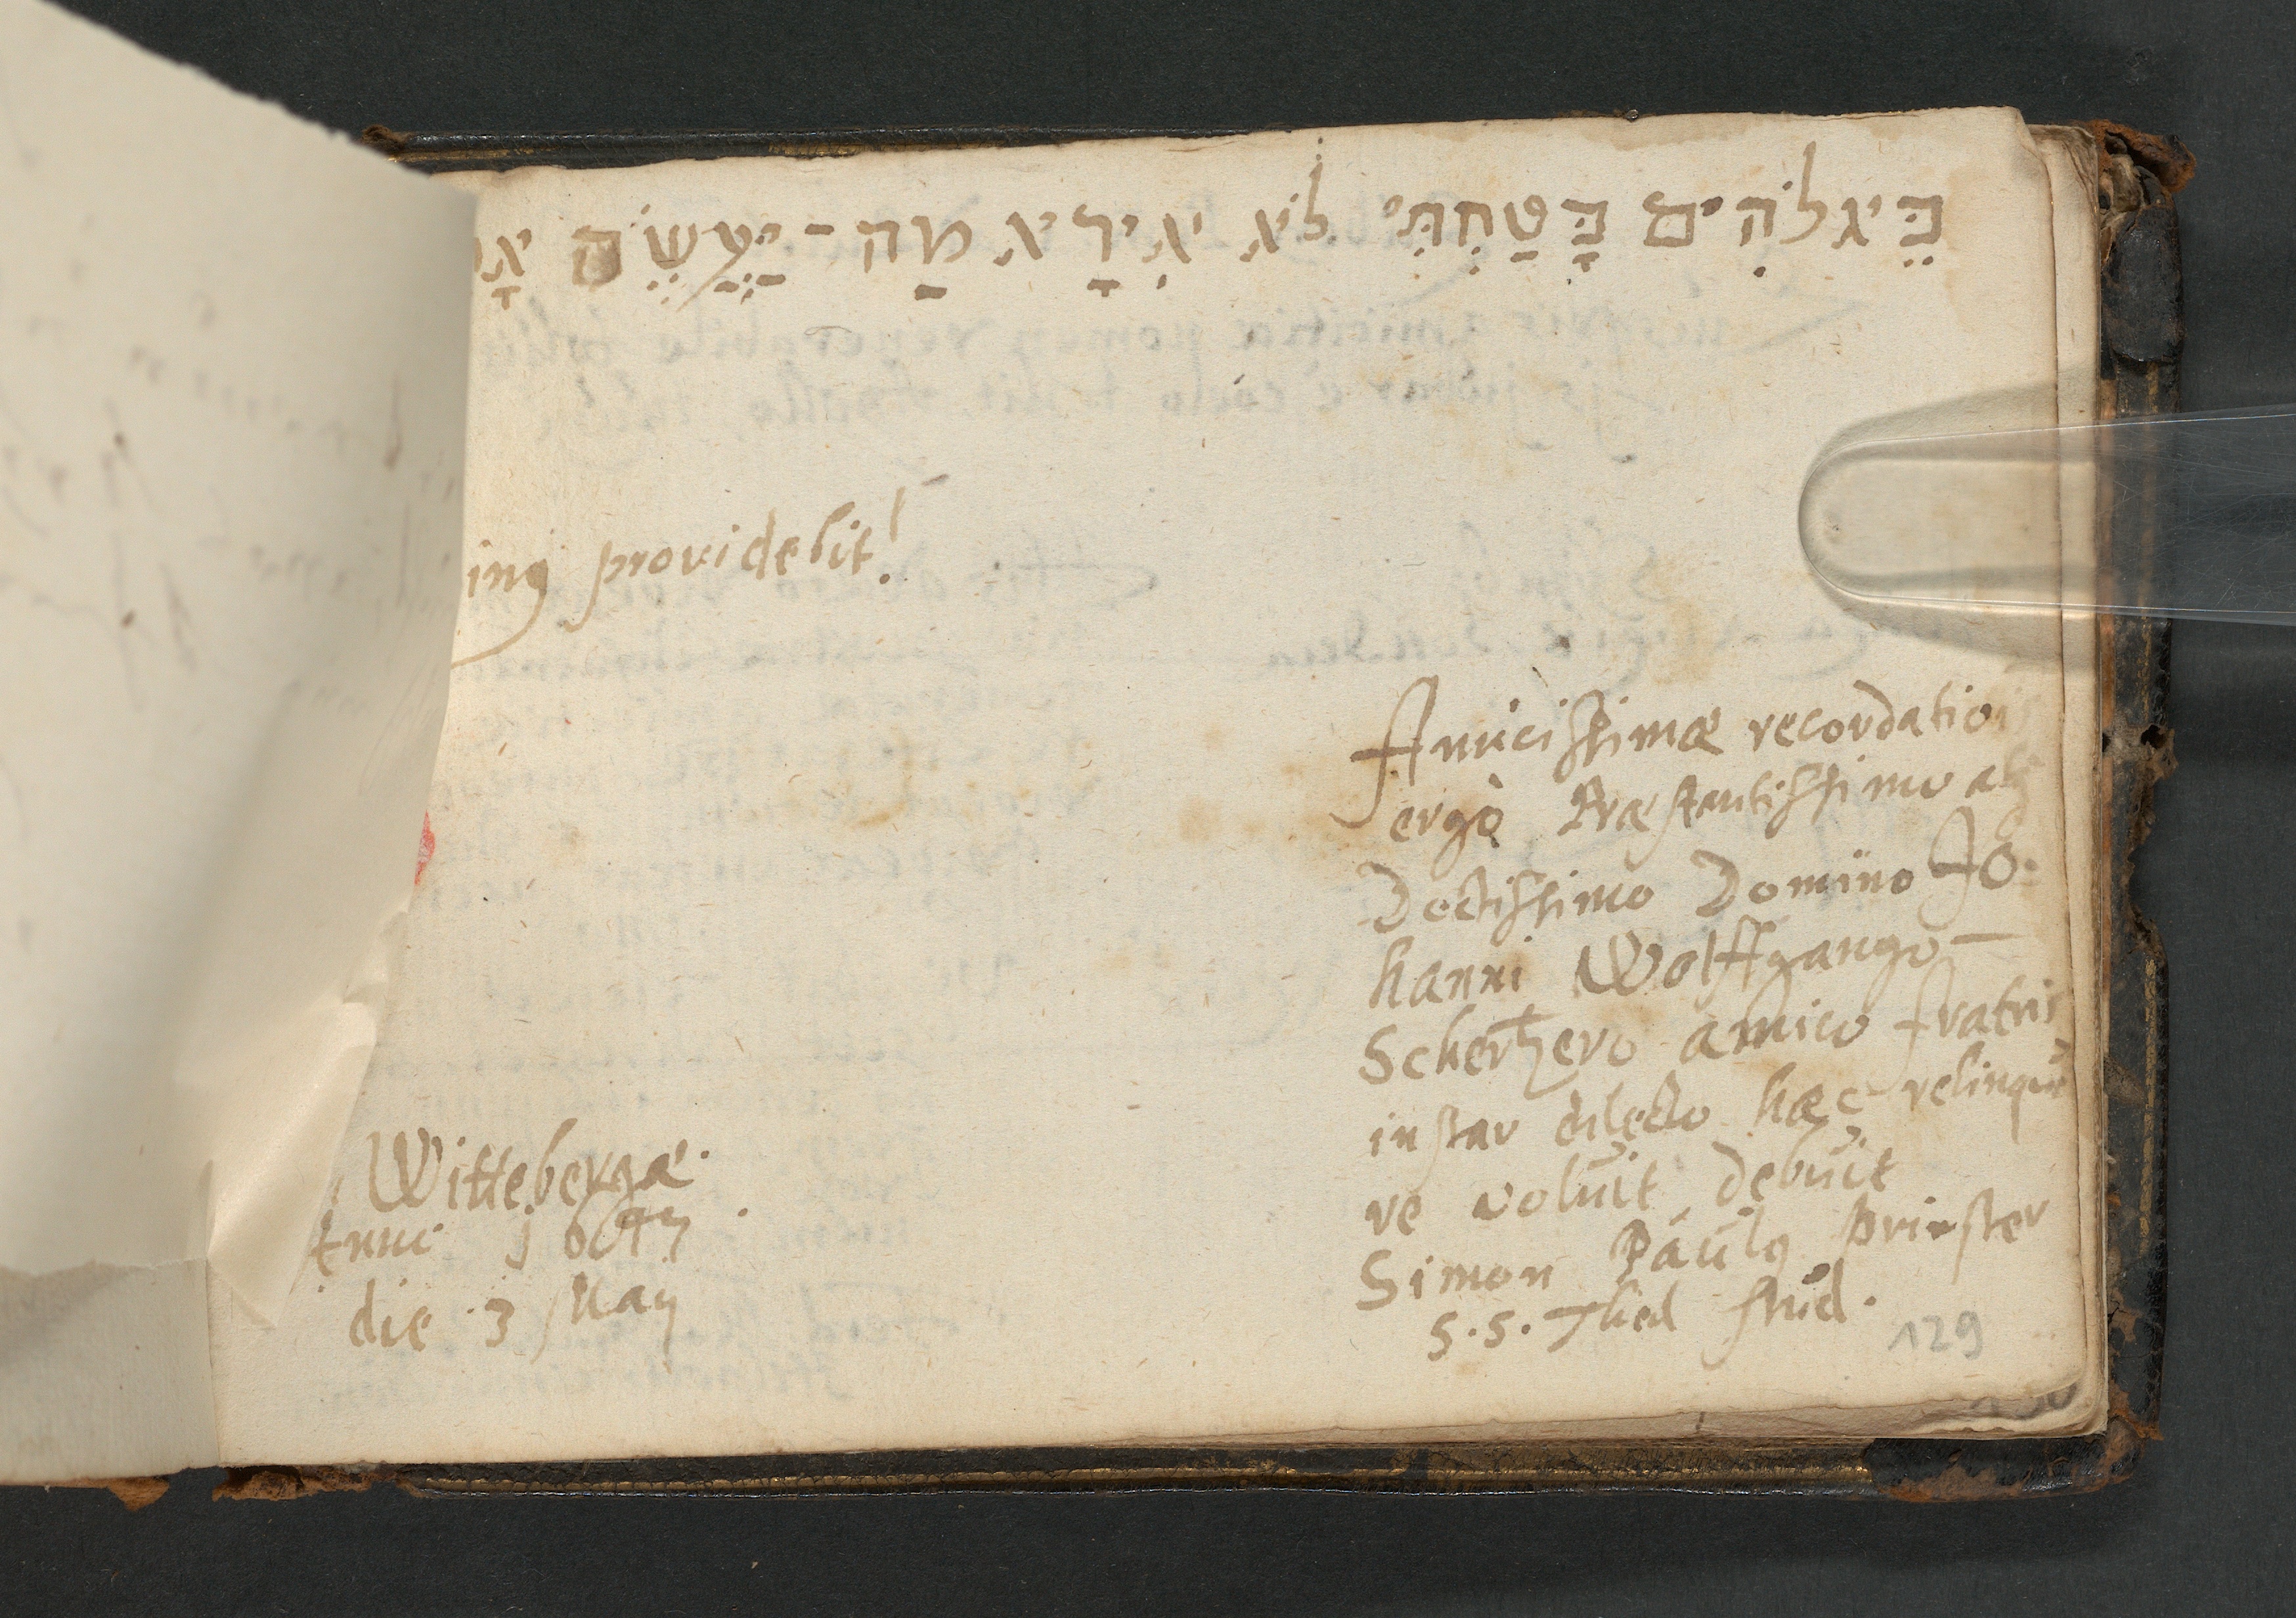 בֵּאלֹהִים בָּטַחְתִּי לֹא אִירָא מַה־יַּעֲשֶׂה
providebit!
Amicissimæ recordatiois
ergò Præstantissimo atq
Doctissimo Domino Jo-
hanni Wolffgango
Schertzero amico fratris
instar dilecto hæc relinque
re voluit debuit
Simon Paulq Prinster
S.S. Theol stud.
Wittebergæ.
Anni
die 3 Maij
129